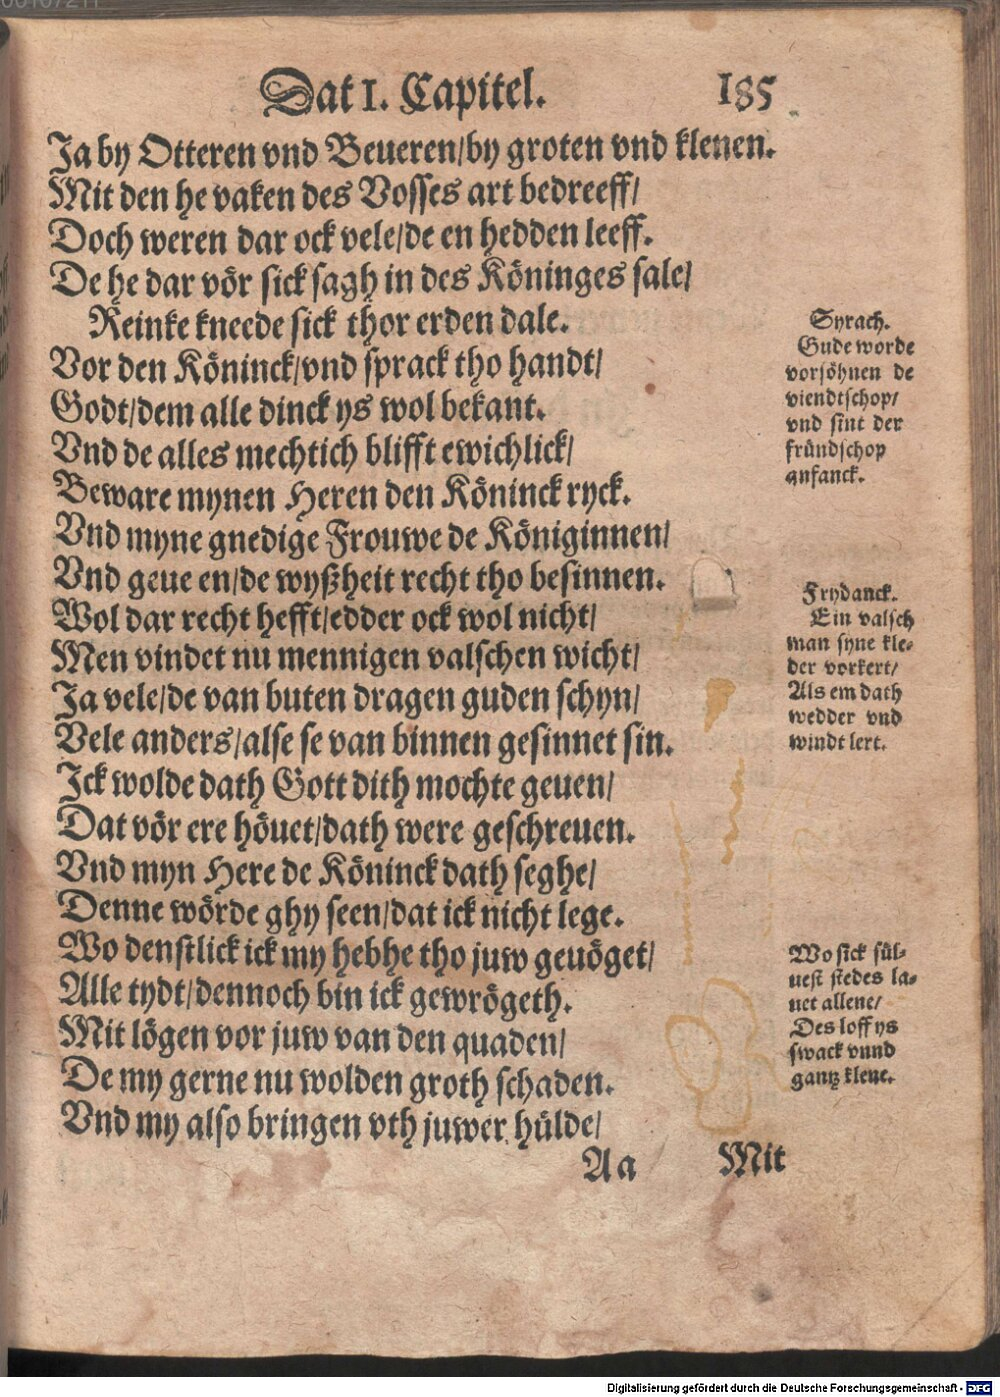 Dat 1. Capitel. 185
Ja by Otteren vnd Beueren/by groten vnd klenen.
Mit den he vaken des Vosses art bedreeff/
Doch weren dar ock vele/de en hedden leeff.
De he dar vör sick sagh in des Köninges sale/
Reinke kneede sick thor erden dale.
Vor den Köninck/vnd sprack tho handt/
Godt/dem alle dinck ys wol bekant.
Vnd de alles mechtich blifft ewichlick/
Beware mynen Heren den Köninck ryck.
Vnd myne gnedige Frouwe de Königinnen/
Vnd geue en/de wyßheit recht tho besinnen.
Wol dar recht hefft/edder ock wol nicht/
Men vindet nu mennigen valschen wicht/
Ja vele/de van buten dragen guden schyn/
Vele anders/alse se van binnen gesinnet sin.
Ick wolde dath Gott dith mochte geuen/
Dat vör ere höuet/dath were geschreuen.
Vnd myn Here de Köninck dath seghe/
Denne wörde ghy seen/dat ick nicht lege.
Wo denstlick ick my hebhe tho juw geuöget/
Alle tydt/dennoch bin ick gewrögeth.
Mit lögen vor juw van den quaden/
De my gerne nu wolden groth schaden.
Vnd my also bringen vth juwer hülde/
Aa Mit
Syrach.
Gude worde
vorsöhnen de
viendtschop/
vnd sint der
fründschop
anfanck.
Frydanck.
Ein valsch
man syne kle-
der vorkert/
Als em dath
wedder vnd
windt lert.
Wo sick sül-
uest stedes la-
uet allene/
Des loff ys
swack vnnd
gantz klene.
Digitalisierung gefördert durch die Deutsche Forschungsgemeinschaft - DFG